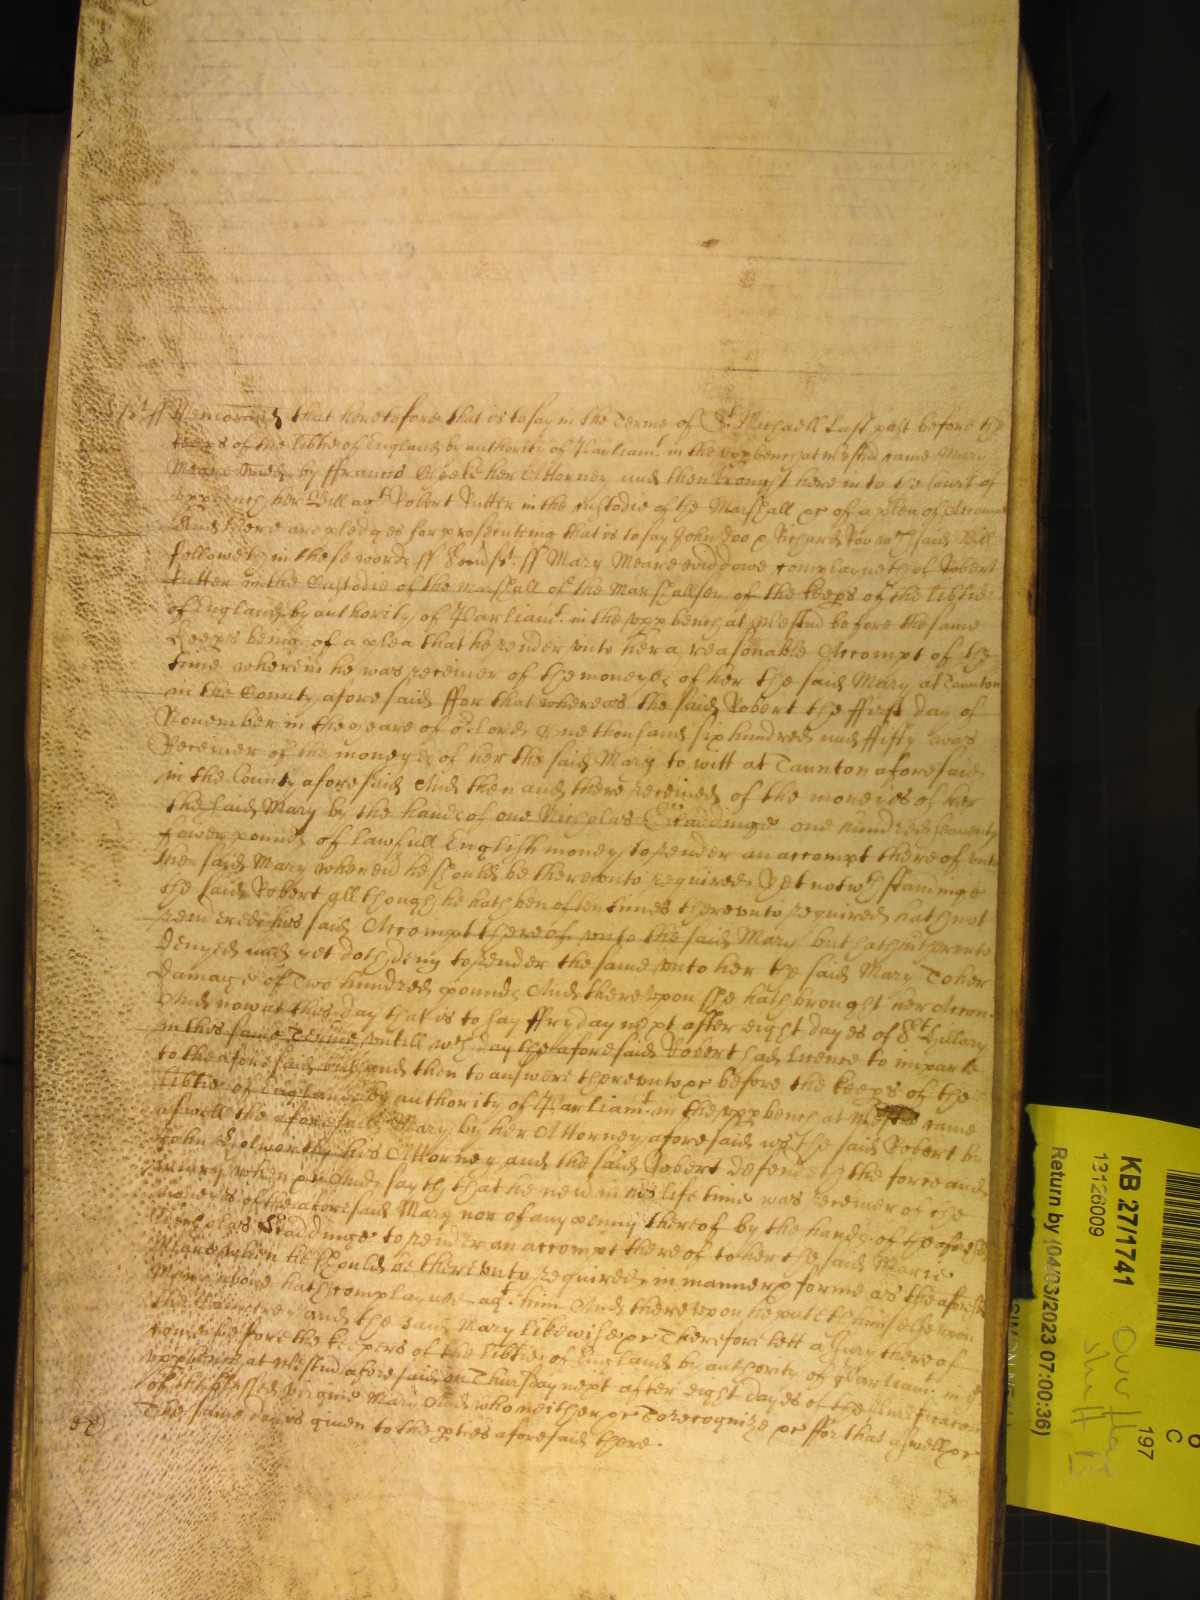 Memorand that heretofore that is to say in the Terme of St Michaell Last past before the
keeps of the libtie of England by authority of Parliamt in the uppbench at Westm came Mary
Meare widd by ffrancis her Attorney and then brought here in to the Court of
uppbench her Bill agt Robert Rutter in the custodie of the Marshall &c of a plea of Accompt
And there are pledges for prosecuting that is to say John Doo & Richard Roo wch said Bill
followeth in these words ss Somst ss Mary Meare widdowe complayneth of Robert
Rutter in the Custodie of the marshall of the Marshallsey of the keeps of the libtie
of England by authority of Parliamt in the upp bench at Westm before the same
keeps being of a plea that he render unto her a reasonable Accompt of the
time wherein he was receiver of the moneyes of her the said Mary at Taunton
in the County aforesaid ffor that whereas the said Robert the ffirst day of
November in the yeare of or Lord One thousand six hundred and ffifty was
Receiver of the moneyes of her the said Mary to witt at Taunton aforesaid
in the County aforesaid And then and there received of the moneyes of her
the said Mary by the hands of one Nicholas Staddinge one hundred seaventy
fower pounds of lawfull English money to render an accompt thereof unto
the said Mary when he should be thereunto required Yet notwthstandinge
the said Robert allthough he hath ben oftentimes thereunto required hath not
rendred his said Accompt thereof unto the said Mary but hath hitherto
denyed and yet doth deny to render the same unto her the said Mary To her
damage of Two hundred pounds And thereupon she hath brought her Accon
And now at this day that is to say ffriday next after eight dayes of St Hillary
in this same Terme untill wch day the aforesaid Robert had licence to imparle
to the aforesaid bill and then to answere thereunto &c before the keeps of the
libtie of England by authority of Parliamt in the uppbench at Westm came
aswell the aforesaid Mary by her Attorney aforesaid as the said Robert by
John his Attorney and the said Robert defendeth the force and
iniury when &c And sayth that he nevr in his life time was receiver of the
moneyes of the aforesaid Mary nor of any penny thereof by the hands of the aforesd
Nicholas Staddinge to render an accompt thereof to her the said Marie
Meare when he should be thereunto required in manner & forme as the aforesd
Mary above hath complayned agt him And thereupon he putteth himselfe upon
the Countrey and the said Mary likewise &c Therefore lett a Jury thereof
come before the keepers of the libtie of England by authority of Parliamt in the
uppbench at Westm aforesaid on Thursday next after eight dayes of the Purificacon
of the blessed virgine Mary And who neither &c To recognize &c ffor that aswell &c
The same day is given to the pties aforesaid there.
KB 27/1741
13126009
Return by (04/03/2023 07:00:36)
197
C
6